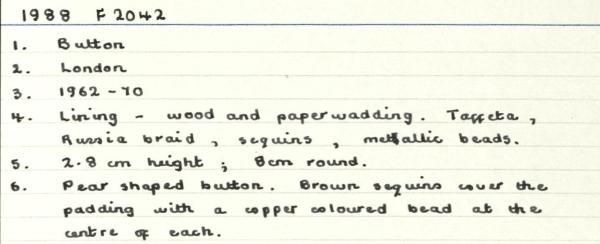 1988 F 2042
1. Button
2. London
3. 1962 - 70
4. Lining - wood and paperwadding. Taffeta,
Russia braid, sequins, metallic beads.
5. 2.8 cm height; 8cm round.
6. Pear shaped button. Brown sequins cover the
padding with a copper coloured bead at the
centre of each.